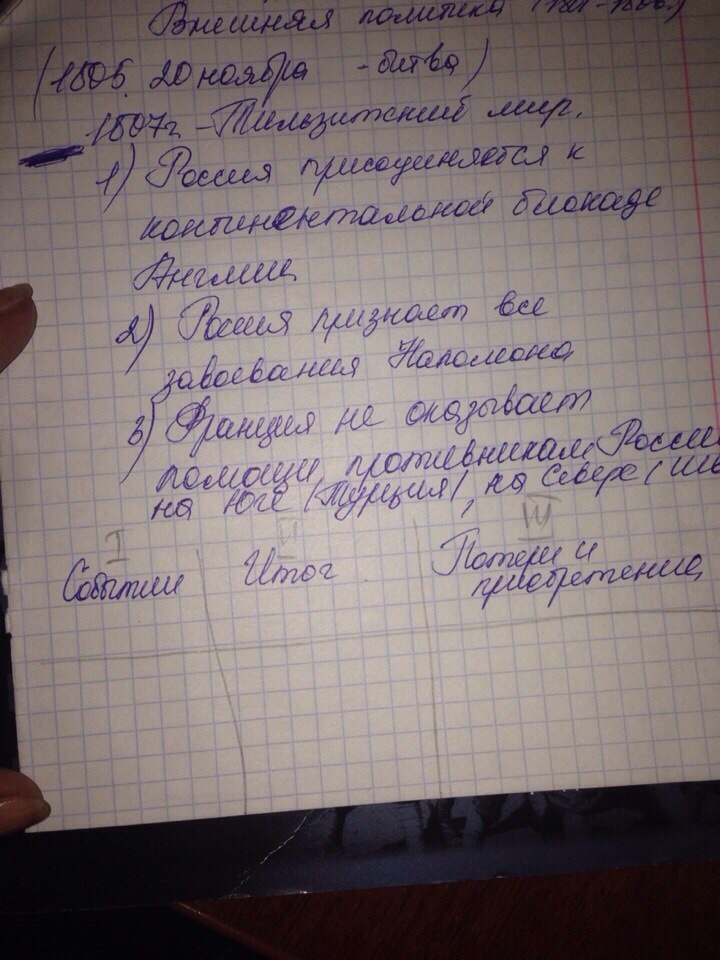 Внешняя политика (
(1805 20 ноября - битва)
1807г - Тильзитский мир.
1) Россия присоединяется к
континентальной блокаде
Англии
2) Россия признает все
завоевания Наполеона
3) Франция не оказывает
помощи противникам России
на юге (Турция), на севере (Шв
I II III
События Итог Потери и
приобретения